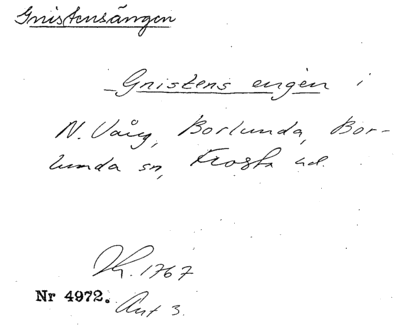 Gnistensängen
Gnistens engen i
N. Vång, Borlunda, Bor-
lunda sn, Frosta hd.
Kh. 1767
Nr 4972. Akt 3.